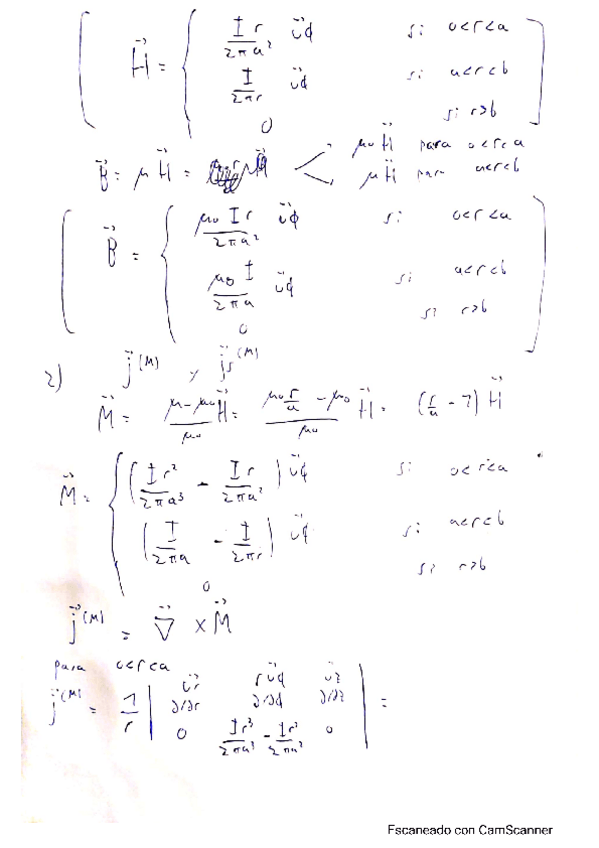 H⃗ = { I r / 2πa² u⃗φ si 0<r<a
I / 2πr u⃗φ si a<r<b
0 si r>b
B⃗ = μ H⃗ = < μ₀ H⃗ para 0<r<a
μ H⃗ para a<r<b
B⃗ = { μ₀ I r / 2πa² u⃗φ si 0<r<a
μ₀ I / 2πa u⃗φ si a<r<b
0 si r>b
2) j⃗^(M) y j⃗s^(M)
M⃗ = (μ-μ₀)/μ₀ H⃗ = (μ₀ r/a - μ₀)/μ₀ H⃗ = (r/a - 1) H⃗
M⃗ = { (I r² / 2πa³ - I r / 2πa²) u⃗φ si 0<r<a
(I / 2πa - I / 2πr) u⃗φ si a<r<b
0 si r>b
j⃗^(M) = ∇⃗ × M⃗
para 0<r<a
j⃗^(M) = 1/r | u⃗r r u⃗φ u⃗z
∂/∂r ∂/∂φ ∂/∂z
0 I r³ / 2πa³ - I r² / 2πa² 0 | =
Escaneado con CamScanner